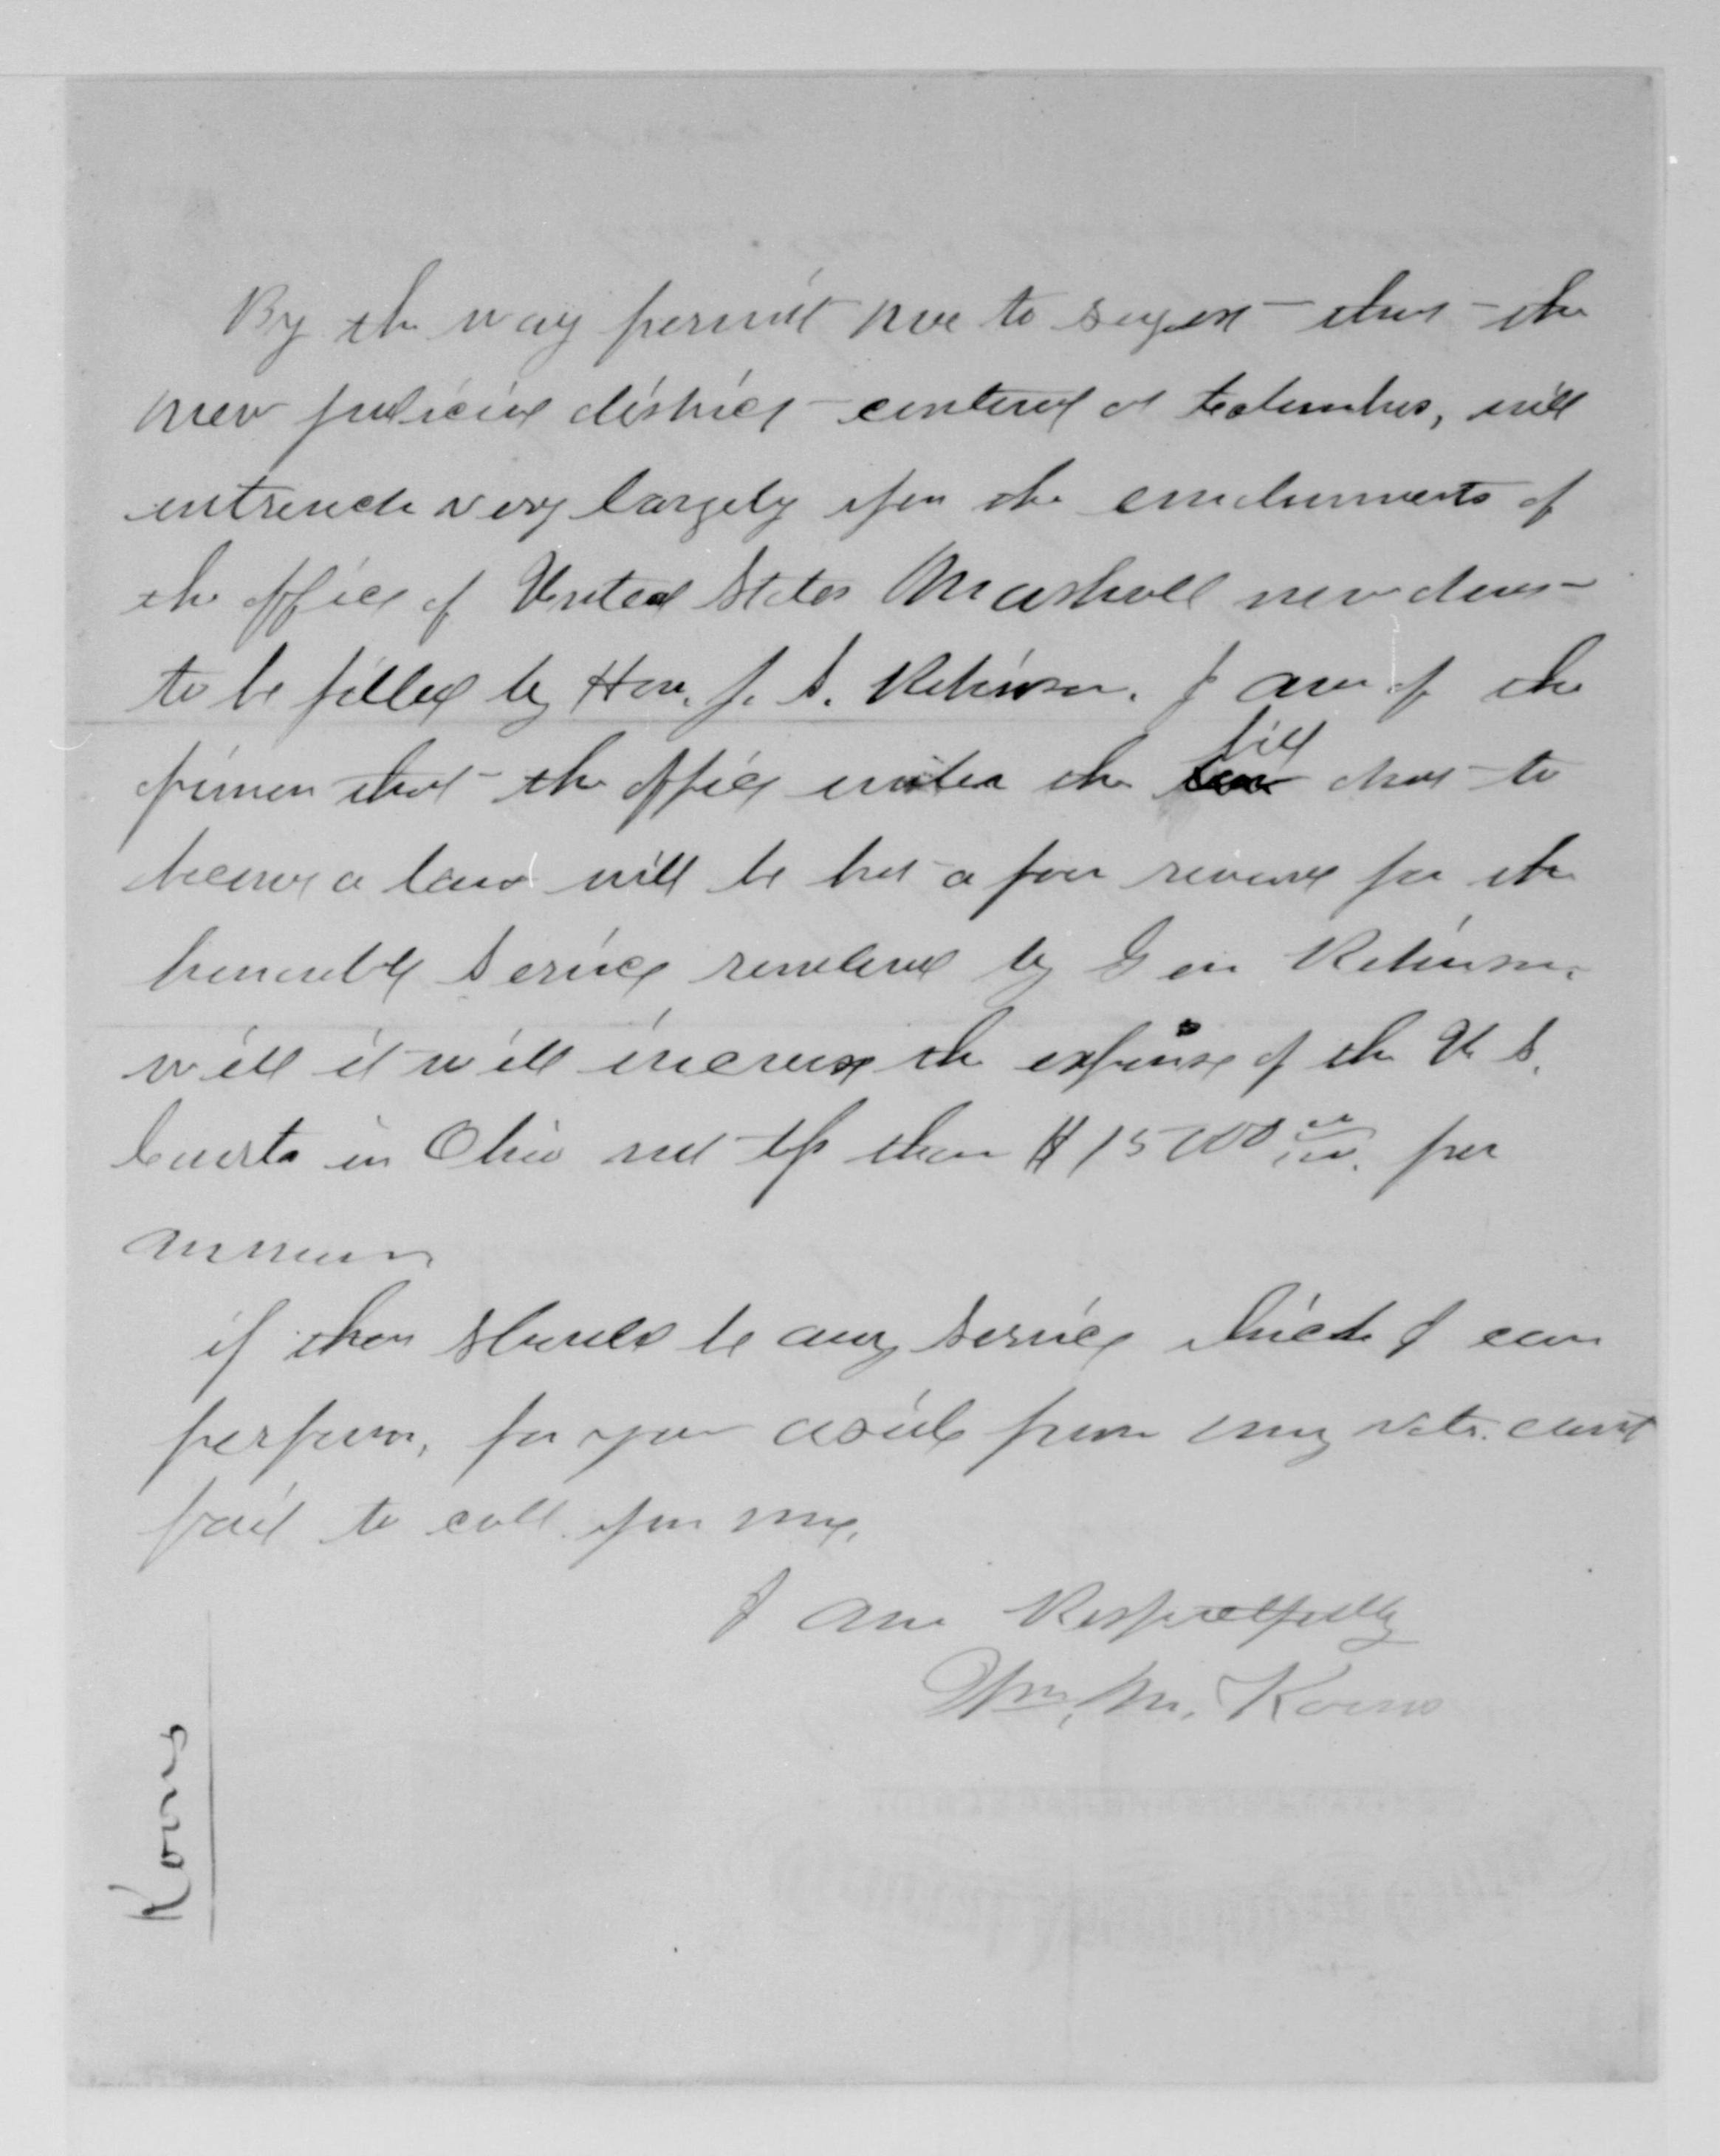 By the way permit me to sugest that the
new judicial district centered at Columbus, will
intrench very largely upon the emoluments of
the office of United States Marshall now about
to be filled by Hon. J. S. Robinson. I am of the
opinion that the office under the bill about to
become a law will be but a poor reward for the
honorable service rendered by Gen Robinson.
well it will increase the expense of the U. S.
Courts in Ohio not less than $15000 00/100. per
annum
if there should be any service which I can
perform, for you aside from my vote. dont
fail to call upon me.
I am Respectfully
Wm. M. Koons
Koons